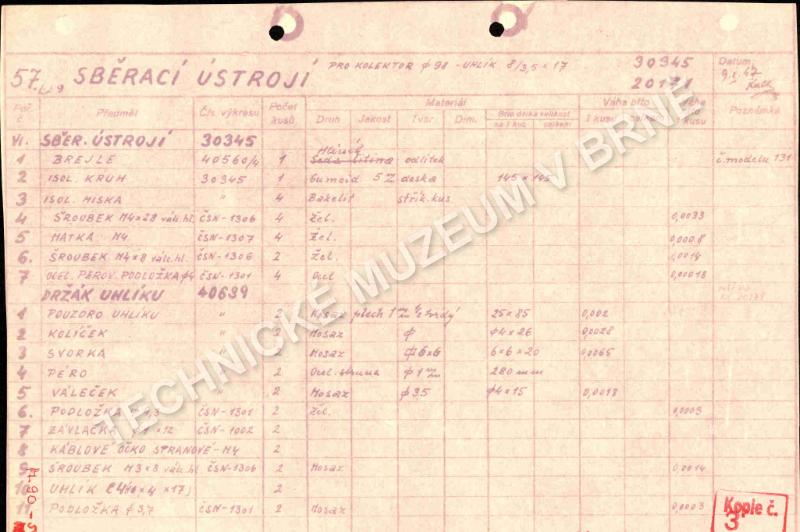 57. SBĚRACÍ ÚSTROJÍ PRO KOLEKTOR φ 98 - UHLÍK 8/3,5 × 17 30345 Datum:
20171 9.1.47
Poř. č. Předmět Čís. výkresu Počet kusů Materiál Váha btto Poznámka
Druh Jakost Tvar Dim. 1 kusu
VI. SBĚR. ÚSTROJÍ 30345
1 BREJLE 40560/4 1 odlitek č. modelu 131
2 ISOL. KRUH 30345 1 Gumoid 5Z deska 145 × 145
3 ISOL. MISKA " 4 Bakelit střík. kus
4 ŠROUBEK M4×28 vál. hl. ČSN-1306 4 Žel. 0,0033
5 MATKA M4 ČSN-1307 4 Žel. 0,0008
6. ŠROUBEK M4×8 vál. hl. ČSN-1306 2 Žel. 0,0014
7 OCEL. PEROV. PODLOŽKA φ4 ČSN-1301 4 Ocel 0,00018
DRŽÁK UHLÍKU 40639
1 POUZDRO UHLÍKU " 2 Mosaz plech 25 × 85 0,002
2 KOLÍČEK " 2 Mosaz φ φ4 × 26 0,0028
3 SVORKA " 2 Mosaz 6×6 6 × 6 × 20 0,0065
4 PÉRO 2 Ocel. struna φ 1 280 mm
5 VÁLEČEK 2 Mosaz φ 3,5 φ4 × 15 0,0018
6. PODLOŽKA ČSN-1301 2 Žel. 0,0003
7 ZÁVLAČKA × 12 ČSN-1002 2
8 KÁBLOVÉ OČKO STRANOVÉ - M4 2
9 ŠROUBEK M3×8 vál. hl. ČSN-1306 2 Mosaz 0,0014
10 UHLÍK 2
11 PODLOŽKA φ 3,7 ČSN-1301 2 Mosaz 0,0003
Kopie č.
3
TECHNICKÉ MUZEUM V BRNĚ